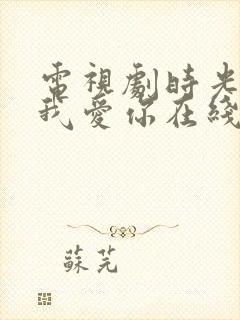 電視劇時光
我愛你在綫
蘇芫